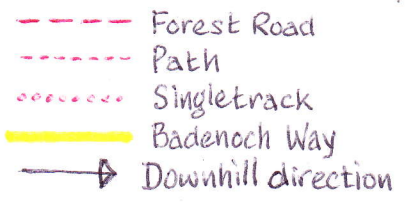 Forest Road
Path
Singletrack
Badenoch Way
Downhill direction